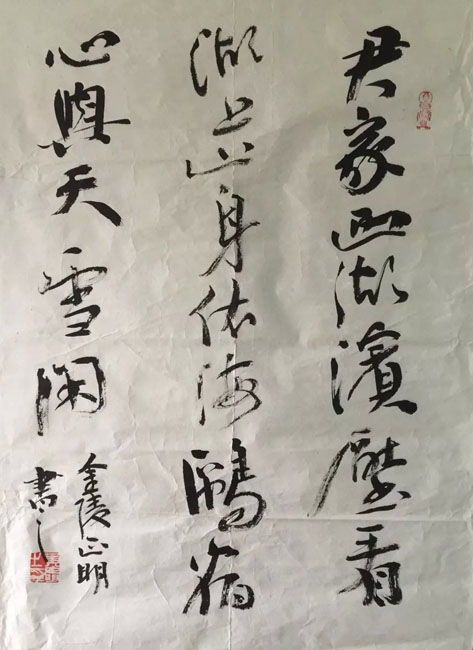 君家西湖濱壓看
湖上山身依海鷗宿
心與天雲閑
金陵正明
書之